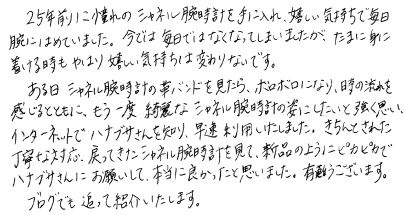 25年前に憧れのシャネル腕時計を手に入れ、嬉しい気持ちで毎日
腕にはめていました。今では毎日ではなくなってしまいましたが、たまに身に
着ける時もやはり嬉しい気持ちは変わりないです。
ある日シャネル腕時計の革バンドを見たら、ボロボロになり、時の流れを
感じるとともに、もう一度 綺麗なシャネル腕時計の姿にしたいと強く思い、
インターネットでハナブサさんを知り、早速利用いたしました。きちんとされた
丁寧な対応、戻ってきたシャネル腕時計を見て、新品のようにピカピカで
ハナブサさんにお願いして、本当に良かったと思いました。有難うございます。
ブログでも追って紹介いたします。